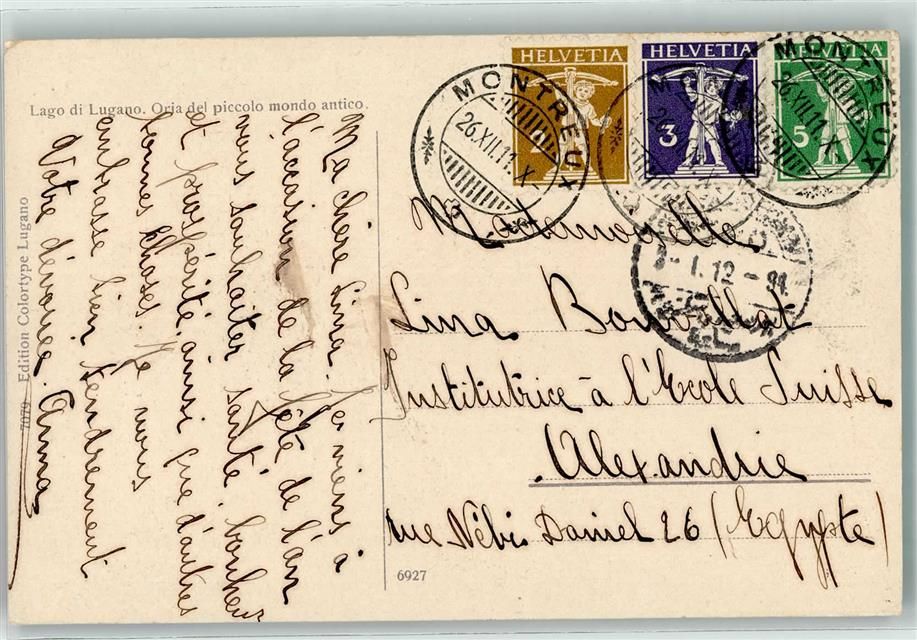 Lago di Lugano. Oria del piccolo mondo antico.
Ma chère Lina. Je viens à
l'occasion de la fête de l'an
vous souhaiter santé, bonheur
et prospérité, ainsi que d'autres
bonnes choses. Je vous
embrasse bien tendrement
Votre dévouée Anna
7079 Edition Colortype Lugano
HELVETIA
HELVETIA
3
HELVETIA
5
MONTREUX
26.XII.11.X
MONTREUX
26.XII.11.X
1-1.12
Mademoiselle
Lina
Institutrice à l'Ecole Suisse
Alexandrie
rue Nébi Daniel 26 (Egypte)
6927